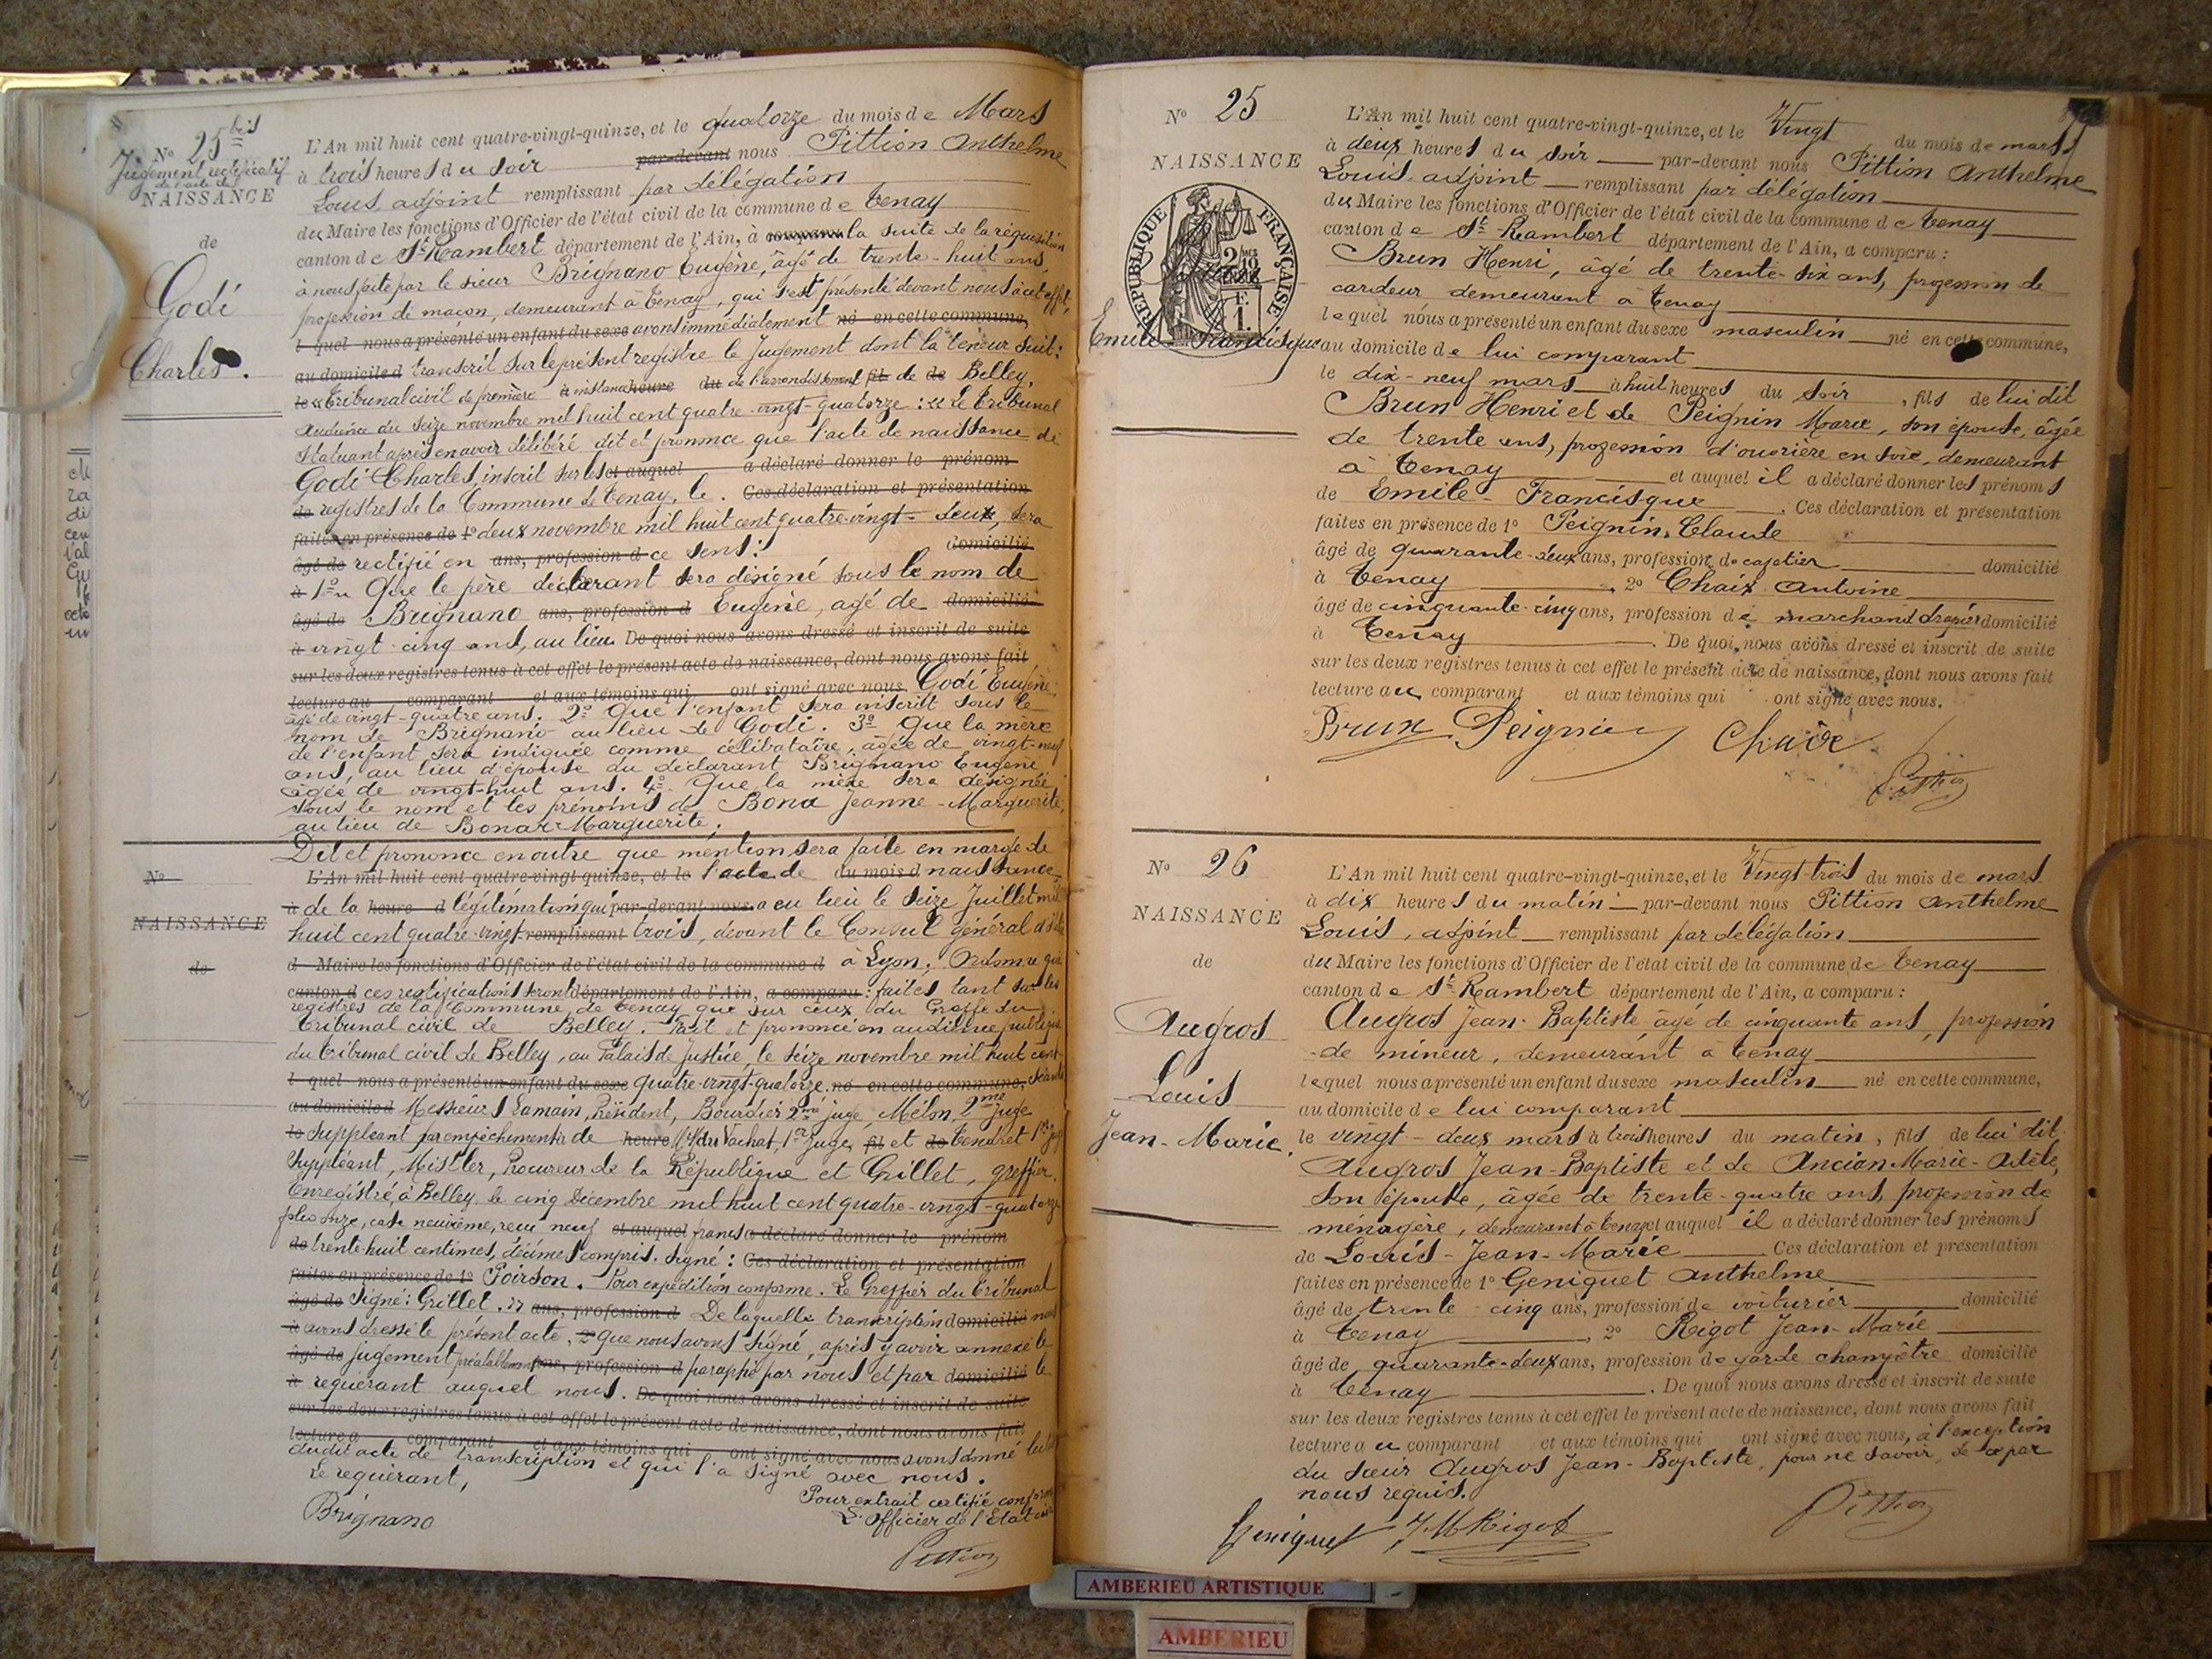 No 25 bis
Jugement rectificatif
de l'acte de
NAISSANCE
de
Godi
Charles.
L'An mil huit cent quatre-vingt-quinze, et le quatorze du mois de Mars
à trois heures du soir par-devant nous Pittion Anthelme
Louis, adjoint remplissant par délégation
du Maire les fonctions d'Officier de l'état civil de la commune de Tenay
canton de St Rambert département de l'Ain, à comparu la suite de la réquisition
à nous faite par le sieur Brignano Eugène, âgé de trente-huit ans,
profession de maçon, demeurant à Tenay, qui s'est présenté devant nous à cet effet,
l quel nous a présenté un enfant du sexe avons immédiatement né en cette commune,
au domicile d transcrit sur le présent registre le Jugement dont la teneur suit:
le «Tribunal civil de première instance heure du de l'arrondissement fil de de Belley,
Audience du seize novembre mil huit cent quatre-vingt-quatorze: «Le Tribunal
statuant après en avoir délibéré dit et prononce que l'acte de naissance de
Godi Charles, inscrit sur les et auquel a déclaré donner le prénom
de registres de la Commune de Tenay, le . Ces déclaration et présentation
faites en présence de 1o deux novembre mil huit cent quatre-vingt-deux, sera
âgé de rectifié en ans, profession d ce sens: domicilié
à 1o Que le père déclarant sera désigné sous le nom de
âgé de Brignano ans, profession d Eugène, agé de domicilié
à vingt-cinq ans, au lieu De quoi nous avons dressé et inscrit de suite
sur les deux registres tenus à cet effet le présent acte de naissance, dont nous avons fait
lecture au comparant et aux témoins qui ont signé avec nous. Godi Eugène
agé de vingt-quatre ans. 2o Que l'enfant sera inscrit sous le
nom de Brignano au lieu de Godi. 3o Que la mère
de l'enfant sera indiquée comme célibataire, âgée de vingt-neuf
ans, au lieu d'épouse du déclarant Brignano Eugène
âgée de vingt-huit ans. 4o Que la mère sera désignée
sous le nom et les prénoms de Bona Jeanne-Marguerite,
au lieu de Bonar Marguerite.
Dit et prononce en outre que mention sera faite en marge de
No
NAISSANCE
de
L'An mil huit cent quatre-vingt-quinze, et le l'acte de du mois d naissance
à de la heure d légitimation qui par-devant nous a eu lieu le seize Juillet mil
huit cent quatre-vingt remplissant trois, devant le Consul général d'Italie
d Maire les fonctions d'Officier de l'état civil de la commune d à Lyon; Ordonne que
canton d ces rectifications seront département de l'Ain, a comparu: faites tant sur les
registres de la Commune de Tenay que sur ceux du Greffe du
Tribunal civil de Belley. Fait et prononcé en audience publique
du tribunal civil de Belley, au Palais de Justice, le seize novembre mil huit cent
l quel nous a présenté un enfant du sexe quatre-vingt-quatorze. né en cette commune, séants
au domicile d Messieurs Lamain, Président, Bourdier 2me juge, Mélon 2me juge
le suppléant par empêchement de heure Mr du Vachat, 1er Juge, fil et de Tendret 1er juge
suppléant, Mistler, Procureur de la République et Grillet, greffier.
Enregistré à Belley le cinq Décembre mil huit cent quatre-vingt-quatorze
folio onze, case neuvième, reçu neuf et auquel francs a déclaré donner le prénom
de trente huit centimes, décimes compris. Signé: Ces déclaration et présentation
faites en présence de 1o Poirson. Pour expédition conforme. Le Greffier du Tribunal
âgé de Signé: Grillet.» ans, profession d De laquelle transcription domicilié nous
à avons dressé le présent acte, 2o que nous avons signé, après y avoir annexé le
âgé de jugement préalablement ans, profession d paraphé par nous et par domicilié le
à requérant auquel nous. De quoi nous avons dressé et inscrit de suite
sur les deux registres tenus à cet effet le présent acte de naissance, dont nous avons fait
lecture a comparant et aux témoins qui ont signé avec nous avons donné lecture
dudit acte de transcription et qui l'a signé avec nous.
Le requérant,
Pour extrait certifié conforme
L'officier de l'Etat civil
Brignano
Pittion
No 25
NAISSANCE
RÉPUBLIQUE FRANÇAISE
2/10
EN SUS
1 F.
Emile Francisque
L'An mil huit cent quatre-vingt-quinze, et le Vingt du mois de mars
à deux heures du soir par-devant nous Pittion Anthelme
Louis, adjoint remplissant par délégation
du Maire les fonctions d'Officier de l'état civil de la commune de Tenay
canton de St Rambert département de l'Ain, a comparu:
Brun Henri, âgé de trente-six ans, profession de
cardeur demeurant à Tenay
lequel nous a présenté un enfant du sexe masculin né en cette commune,
au domicile de lui comparant
le dix-neuf mars à huit heures du soir, fils de lui dit
Brun Henri et de Peignin Marie, son épouse, âgée
de trente ans, profession d'ouvrière en soie, demeurant
à Tenay et auquel il a déclaré donner les prénoms
de Emile-Francisque. Ces déclaration et présentation
faites en présence de 1o Peignin, Claude
âgé de quarante-deux ans, profession de cafetier domicilié
à Tenay, 2o Chaix Antoine
âgé de cinquante-cinq ans, profession de marchand drapier domicilié
à Tenay. De quoi nous avons dressé et inscrit de suite
sur les deux registres tenus à cet effet le présent acte de naissance, dont nous avons fait
lecture au comparant et aux témoins qui ont signé avec nous.
Brun Peignin Chaix
Pittion
No 26
NAISSANCE
de
Augros
Louis
Jean-Marie.
L'An mil huit cent quatre-vingt-quinze, et le Vingt-trois du mois de mars
à dix heures du matin par-devant nous Pittion Anthelme
Louis, adjoint remplissant par délégation
du Maire les fonctions d'Officier de l'état civil de la commune de Tenay
canton de St Rambert département de l'Ain, a comparu:
Augros Jean-Baptiste, âgé de cinquante ans, profession
de mineur, demeurant à Tenay
lequel nous a présenté un enfant du sexe masculin né en cette commune,
au domicile de lui comparant
le vingt-deux mars à trois heures du matin, fils de lui dit
Augros Jean-Baptiste et de Ancian Marie-Adèle,
son épouse, âgée de trente-quatre ans, profession de
ménagère, demeurant à Tenay et auquel il a déclaré donner les prénoms
de Louis-Jean-Marie Ces déclaration et présentation
faites en présence de 1o Geniquet Anthelme
âgé de trente-cinq ans, profession de voiturier domicilié
à Tenay, 2o Rigot Jean-Marie
âgé de quarante-deux ans, profession de garde champêtre domicilié
à Tenay. De quoi nous avons dressé et inscrit de suite
sur les deux registres tenus à cet effet le présent acte de naissance, dont nous avons fait
lecture au comparant et aux témoins qui ont signé avec nous, à l'exception
du sieur Augros Jean-Baptiste, pour ne savoir, de ce par
nous requis.
Geniquet J M Rigot
Pittion
AMBERIEU ARTISTIQUE
AMBERIEU